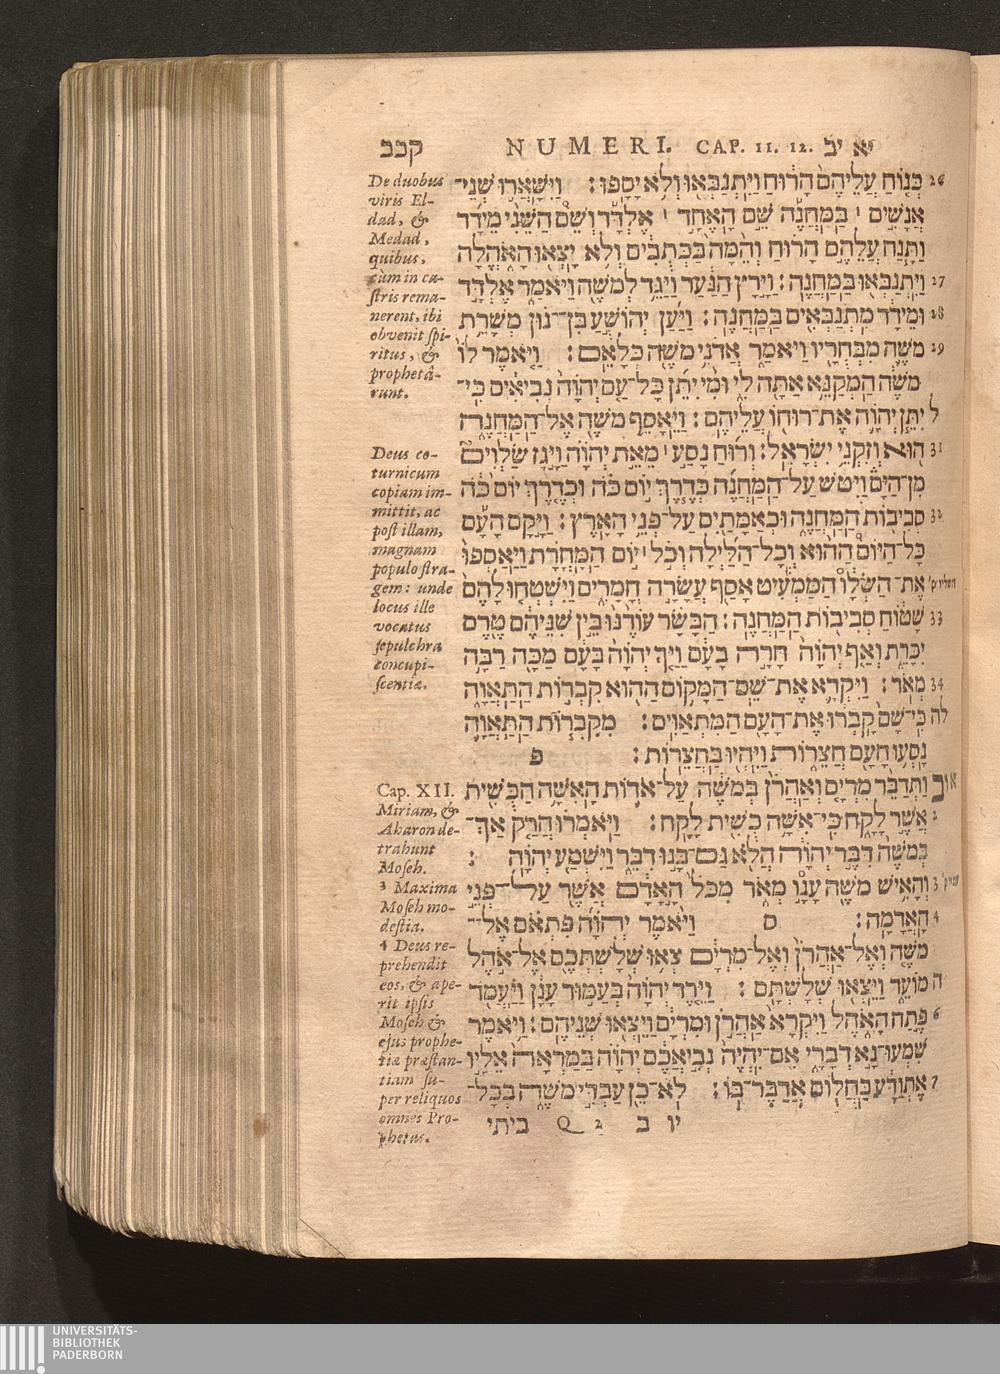 קכב NUMERI. CAP. 11. 12. יא יב
De duobus
viris El-
dad, &
Medad,
quibus,
cùm in ca-
stris rema-
nerent, ibi
obvenit spi-
ritus, &
prophetâ-
runt.
Deus co-
turnicum
copiam im-
mittit, ac
post illam,
magnam
populo stra-
gem: unde
locus ille
vocatus
sepulchra
concupi-
scentiæ.
Cap. XII.
Miriam, &
Aharon de-
trahunt
Moseh.
3 Maxima
Moseh mo-
destia.
4 Deus re-
prehendit
eos, & ape-
rit ipsis
Moseh &
ejus prophe-
tiæ præstan-
tiam su-
per reliquos
omnes Pro-
phetas.
26 כְּנ֤וֹחַ עֲלֵיהֶם֙ הָר֔וּחַ וַיִּֽתְנַבְּא֖וּ וְלֹ֥א יָסָֽפוּ׃ וַיִּשָּׁאֲר֣וּ שְׁנֵֽי־
אֲנָשִׁ֣ים ׀ בַּֽמַּחֲנֶ֡ה שֵׁ֣ם הָאֶחָ֣ד ׀ אֶלְדָּ֡ד וְשֵׁם֩ הַשֵּׁנִ֨י מֵידָ֜ד
וַתָּ֧נַח עֲלֵהֶ֣ם הָר֗וּחַ וְהֵ֙מָּה֙ בַּכְּתֻבִ֔ים וְלֹ֥א יָצְא֖וּ הָאֹ֑הֱלָה
27 וַיִּֽתְנַבְּא֖וּ בַּֽמַּחֲנֶֽה׃ וַיָּ֣רָץ הַנַּ֔עַר וַיַּגֵּ֥ד לְמֹשֶׁ֖ה וַיֹּאמַ֑ר אֶלְדָּ֣ד
28 וּמֵידָ֔ד מִֽתְנַבְּאִ֖ים בַּֽמַּחֲנֶֽה׃ וַיַּ֜עַן יְהוֹשֻׁ֣עַ בִּן־נ֗וּן מְשָׁרֵ֥ת
29 מֹשֶׁ֛ה מִבְּחֻרָ֖יו וַיֹּאמַ֑ר אֲדֹנִ֥י מֹשֶׁ֖ה כְּלָאֵֽם׃ וַיֹּ֤אמֶר לוֹ֙
מֹשֶׁ֔ה הַֽמְקַנֵּ֥א אַתָּ֖ה לִ֑י וּמִ֨י יִתֵּ֜ן כָּל־עַ֤ם יְהוָה֙ נְבִיאִ֔ים כִּי־
ל יִתֵּ֧ן יְהוָ֛ה אֶת־רוּח֖וֹ עֲלֵיהֶֽם׃ וַיֵּאָסֵ֥ף מֹשֶׁ֖ה אֶל־הַֽמַּחֲנֶ֑ה
31 ה֖וּא וְזִקְנֵ֥י יִשְׂרָאֵֽל׃ וְר֜וּחַ נָסַ֣ע ׀ מֵאֵ֣ת יְהוָ֗ה וַיָּ֣גָז שַׂלְוִים֮
מִן־הַיָּם֒ וַיִּטֹּ֨שׁ עַל־הַֽמַּחֲנֶ֜ה כְּדֶ֧רֶךְ י֣וֹם כֹּ֗ה וּכְדֶ֤רֶךְ יוֹם֙ כֹּ֔ה
32 סְבִיב֖וֹת הַֽמַּחֲנֶ֑ה וּכְאַמָּתַ֖יִם עַל־פְּנֵ֥י הָאָֽרֶץ׃ וַיָּ֣קָם הָעָ֡ם
כָּל־הַיּוֹם֩ הַה֨וּא וְכָל־הַלַּ֜יְלָה וְכֹ֣ל ׀ י֣וֹם הַֽמָּחֳרָ֗ת וַיַּֽאַסְפוּ֙
אֶת־הַשְּׂלָ֔ו הַמַּמְעִ֕יט אָסַ֖ף עֲשָׂרָ֣ה חֳמָרִ֑ים וַיִּשְׁטְח֤וּ לָהֶם֙
33 שָׁט֔וֹחַ סְבִיב֖וֹת הַֽמַּחֲנֶֽה׃ הַבָּשָׂ֗ר עוֹדֶ֙נּוּ֙ בֵּ֣ין שִׁנֵּיהֶ֔ם טֶ֖רֶם
יִכָּרֵ֑ת וְאַ֤ף יְהוָה֙ חָרָ֣ה בָעָ֔ם וַיַּ֤ךְ יְהוָה֙ בָּעָ֔ם מַכָּ֖ה רַבָּ֥ה
34 מְאֹֽד׃ וַיִּקְרָ֛א אֶת־שֵֽׁם־הַמָּק֥וֹם הַה֖וּא קִבְר֣וֹת הַֽתַּאֲוָ֑ה
לה כִּי־שָׁם֙ קָֽבְר֔וּ אֶת־הָעָ֖ם הַמִּתְאַוִּֽים׃ מִקִּבְר֧וֹת הַֽתַּאֲוָ֛ה
נָסְע֥וּ הָעָ֖ם חֲצֵר֑וֹת וַיִּהְי֖וּ בַּחֲצֵרֽוֹת׃ פ
יב א וַתְּדַבֵּ֨ר מִרְיָ֤ם וְאַהֲרֹן֙ בְּמֹשֶׁ֔ה עַל־אֹד֛וֹת הָאִשָּׁ֥ה הַכֻּשִׁ֖ית
2 אֲשֶׁ֣ר לָקָ֑ח כִּֽי־אִשָּׁ֥ה כֻשִׁ֖ית לָקָֽח׃ וַיֹּאמְר֗וּ הֲרַ֤ק אַךְ־
בְּמֹשֶׁה֙ דִּבֶּ֣ר יְהוָ֔ה הֲלֹ֖א גַּם־בָּ֣נוּ דִבֵּ֑ר וַיִּשְׁמַ֖ע יְהוָֽה׃
3 וְהָאִ֥ישׁ מֹשֶׁ֖ה עָנָ֣ו מְאֹ֑ד מִכֹּל֙ הָֽאָדָ֔ם אֲשֶׁ֖ר עַל־פְּנֵ֥י
4 הָאֲדָמָֽה׃ ס וַיֹּ֨אמֶר יְהוָ֜ה פִּתְאֹ֗ם אֶל־
מֹשֶׁ֤ה וְאֶֽל־אַהֲרֹן֙ וְאֶל־מִרְיָ֔ם צְא֥וּ שְׁלָשְׁתְּכֶ֖ם אֶל־אֹ֣הֶל
ה מוֹעֵ֑ד וַיֵּצְא֖וּ שְׁלָשְׁתָּֽם׃ וַיֵּ֤רֶד יְהוָה֙ בְּעַמּ֣וּד עָנָ֔ן וַֽיַּעֲמֹ֖ד
6 פֶּ֣תַח הָאֹ֑הֶל וַיִּקְרָא֙ אַהֲרֹ֣ן וּמִרְיָ֔ם וַיֵּצְא֖וּ שְׁנֵיהֶֽם׃ וַיֹּ֖אמֶר
שִׁמְעוּ־נָ֣א דְבָרָ֑י אִם־יִֽהְיֶה֙ נְבִ֣יאֲכֶ֔ם יְהוָ֗ה בַּמַּרְאָה֙ אֵלָ֣יו
7 אֶתְוַדָּ֔ע בַּחֲל֖וֹם אֲדַבֶּר־בּֽוֹ׃ לֹא־כֵ֖ן עַבְדִּ֣י מֹשֶׁ֑ה בְּכָל־
יו ב Q 2 ביתי
UNIVERSITÄTS-
BIBLIOTHEK
PADERBORN